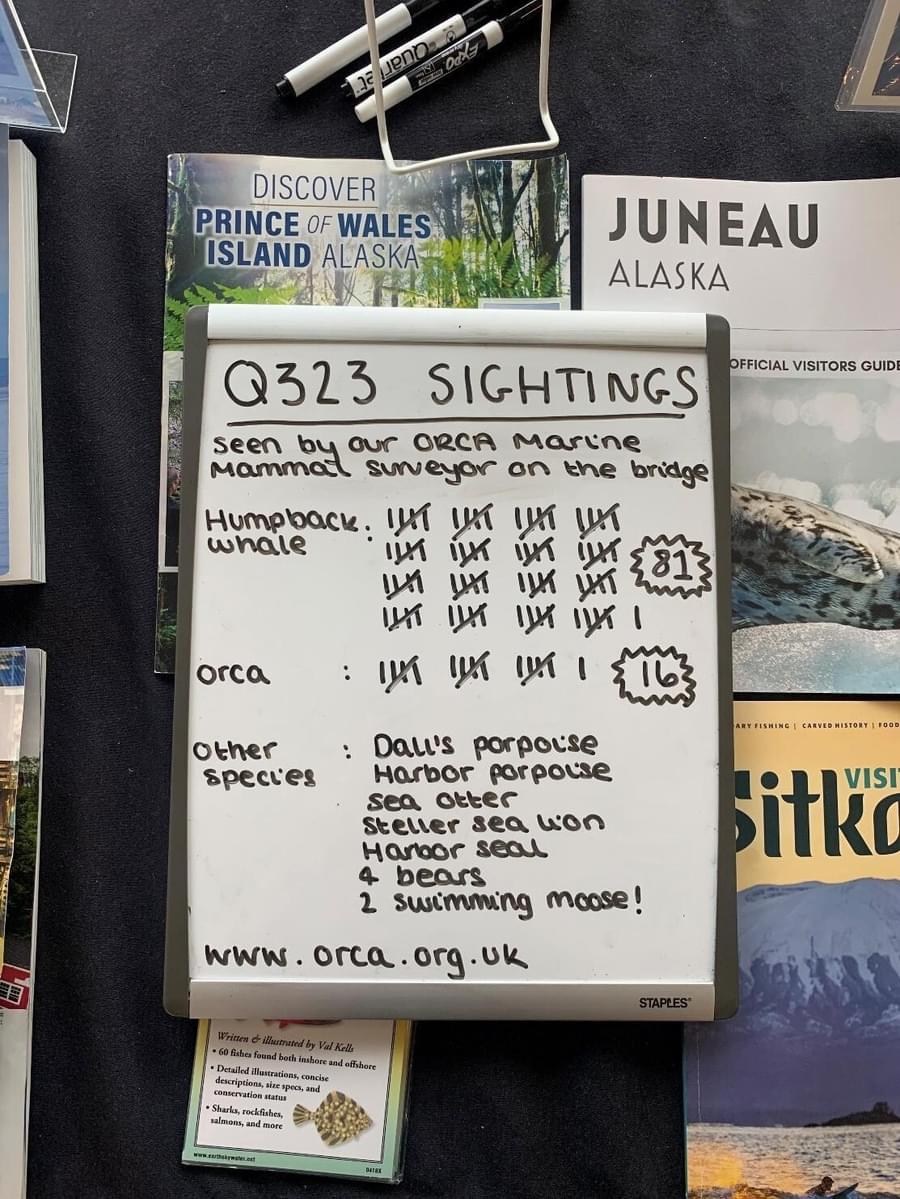 Quartet
EXPO
DISCOVER
PRINCE OF WALES
ISLAND ALASKA
JUNEAU
ALASKA
OFFICIAL VISITORS GUIDE
Q323 SIGHTINGS
seen by our ORCA Marine
Mammal surveyor on the bridge
Humpback :
whale
81
orca : 16
other : Dall's porpoise
species Harbor porpoise
sea otter
steller sea lion
Harbor seal
4 bears
2 swimming moose!
www.orca.org.uk
STAPLES
ARY FISHING | CARVED HISTORY | FOOD
VISI
Sitka
Written & illustrated by Val Kells
• 60 fishes found both inshore and offshore
• Detailed illustrations, concise
descriptions, size specs, and
conservation status
• Sharks, rockfishes,
salmons, and more
www.earthskywater.net
0418X